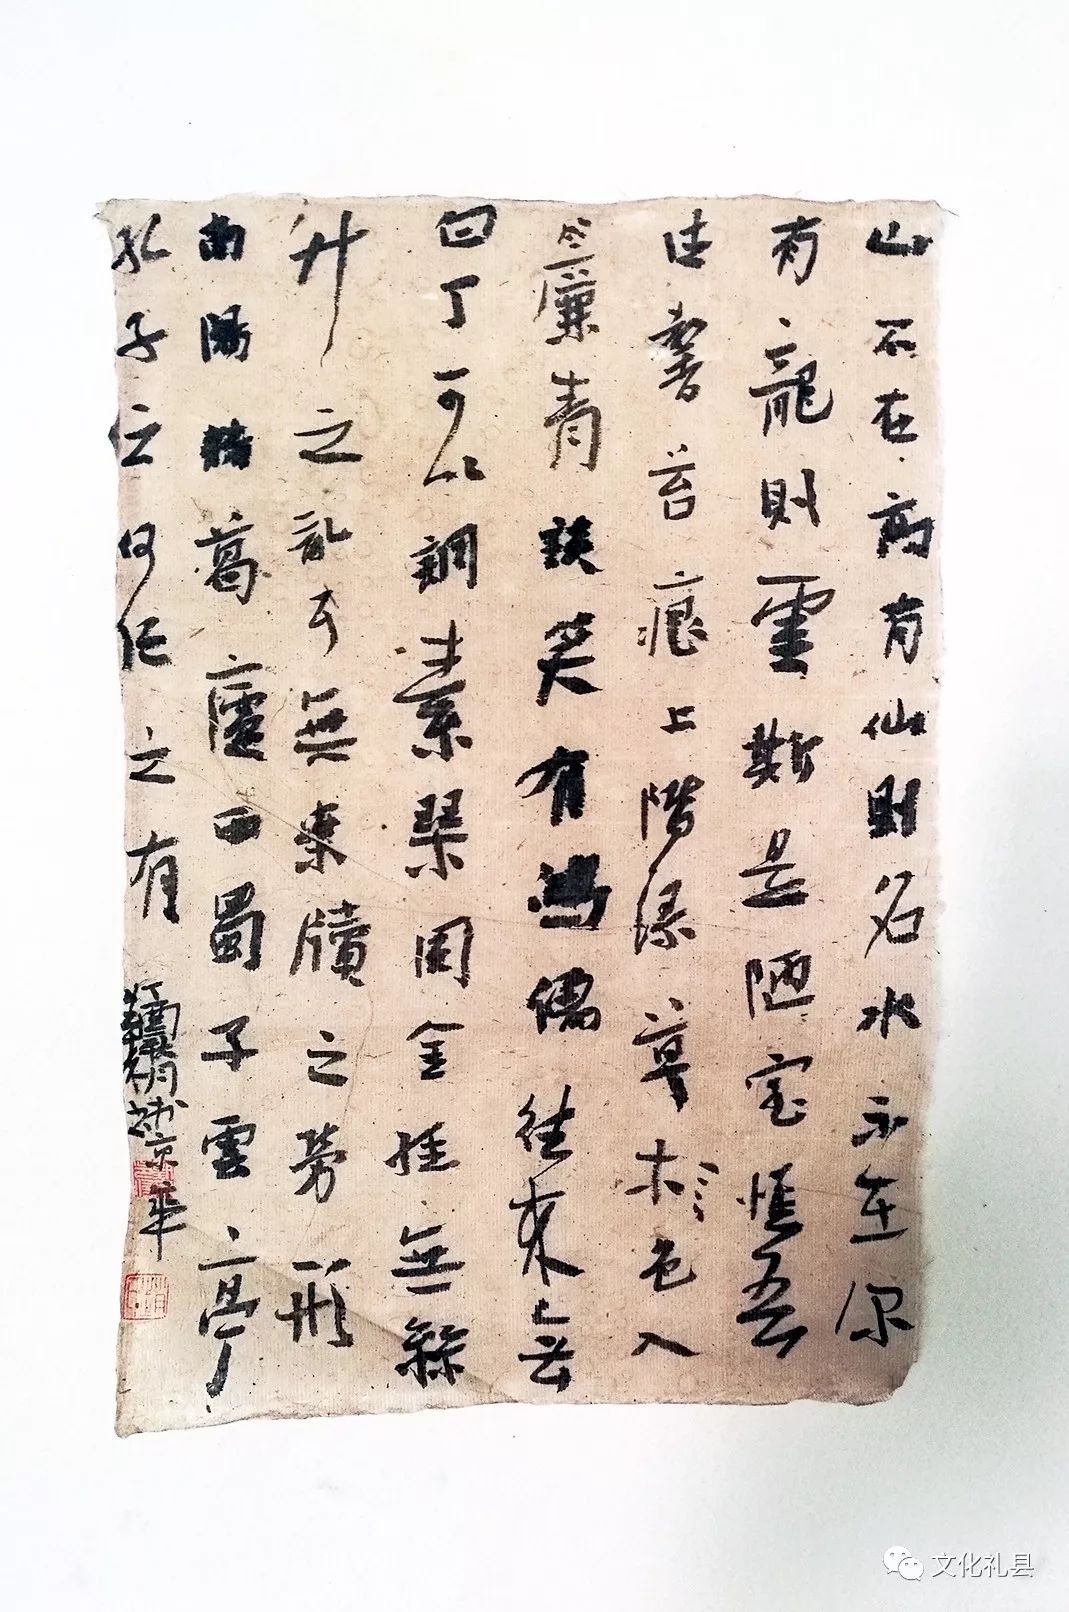 山不在高有仙則名水不在深
有龍則靈斯是陋室惟吾
德馨苔痕上階綠草木色入
簾青談笑有鴻儒往來無
白丁可以調素琴閱金經無絲
竹之亂耳無案牘之勞形
南陽諸葛廬西蜀子雲亭
孔子云何陋之有
文化礼县